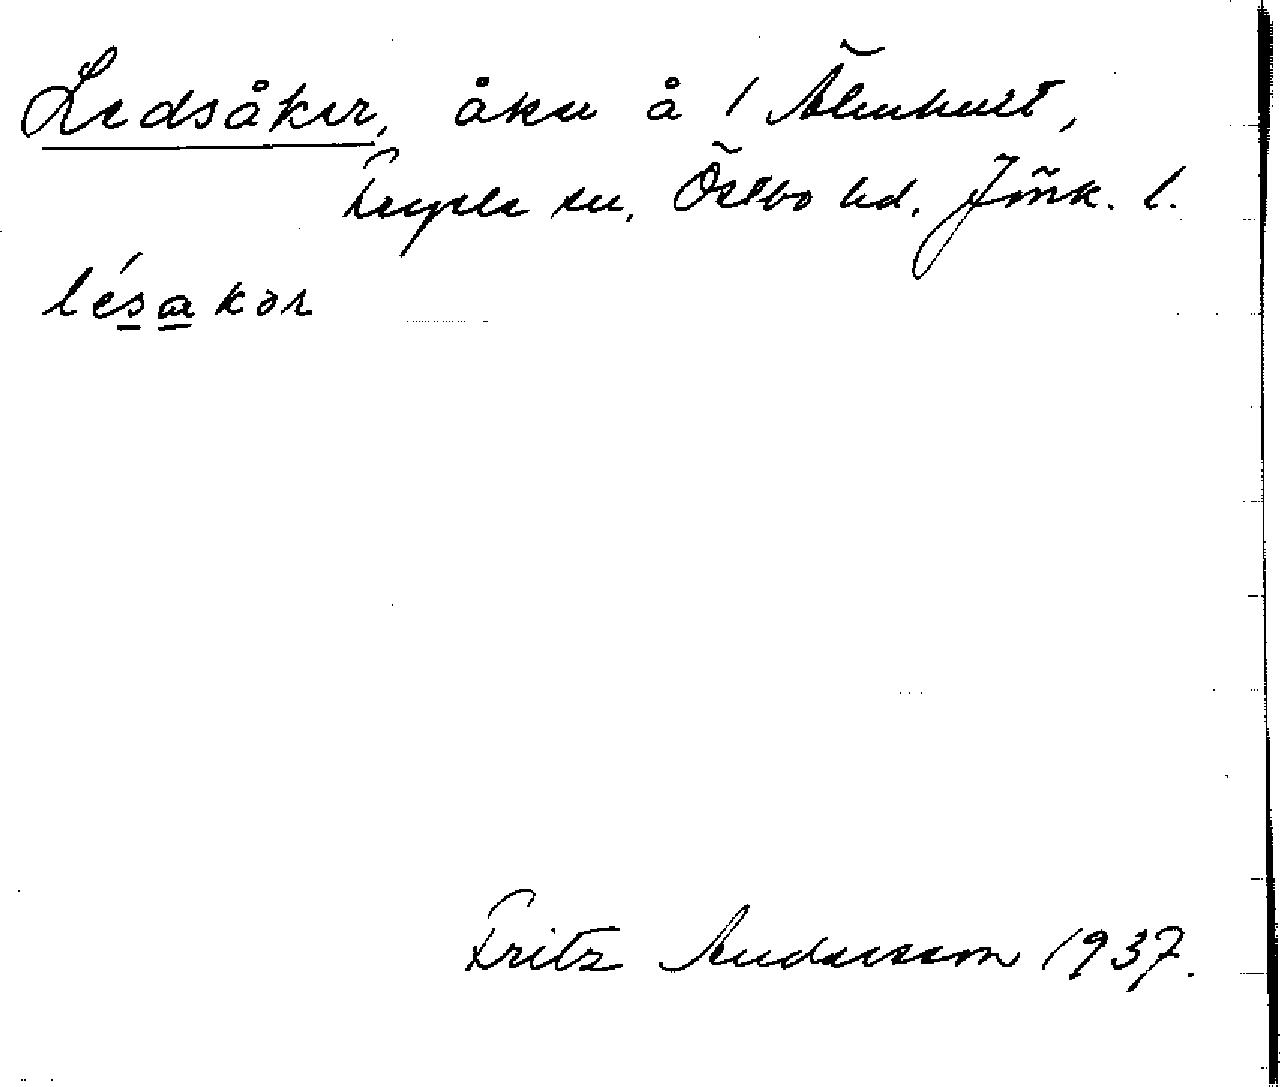 Ledsåker, åker å 1 Älmhult,
Fryele sn, Östbo hd. Jönk. l.
lésakər
Fritz Andersson 1937.